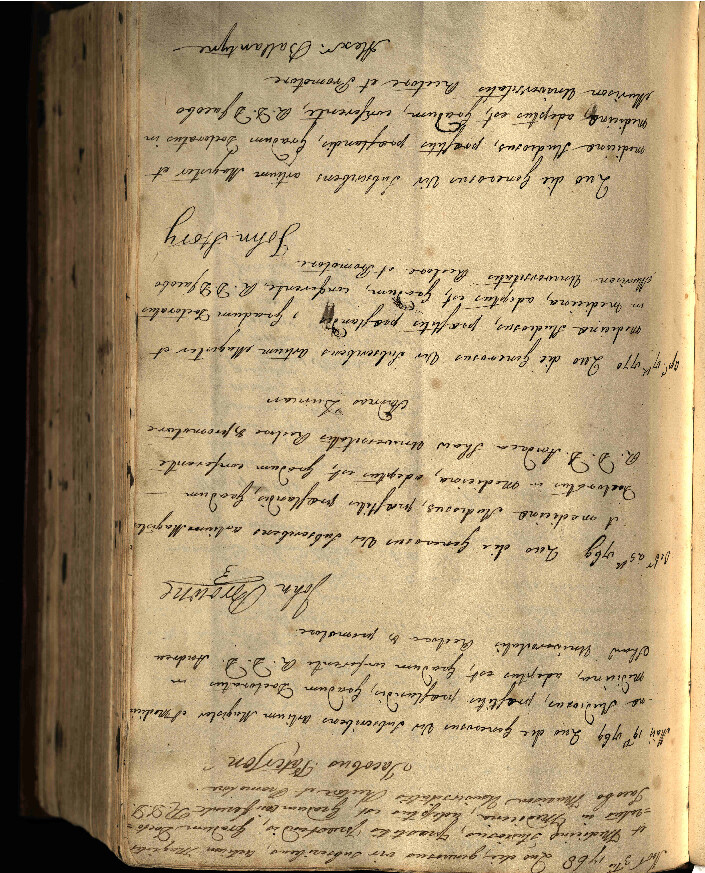 1768 Quo die generosus vir subscribens, artium Magister
et Medicinæ studiosus, præstitis præstandis, gradum Docto=
=ratus in Medicina, adeptus est Gradum conferente R. D. D.
Jacobo Murison Universitatis Rectore et Promotore
Jacobus Paterson
19th 1769 Quo die generosus Vir Subscribens artium Magister et Medici
næ Studiosus, præstitis præstandis, Gradum Doctoratus in
Medicina, adeptus est, Gradum conferente R. D. D. Andrea
Shaw Universitatis Rectore & promotore
John Browne
3
25th 1769 Quo die generosus Vir Subscribens artium Magister
et medicinæ Studiosus, præstitis præstandis, Gradum
Doctoratus in Medicina, adeptus est, Gradum conferente
R. D. D. Andrea Shaw Universitatis Rectore & promotore
Thomas
1770 Quo die generosus Vir Subscribens artium Magister et
medicinæ Studiosus, præstitis præstandis, Gradum Doctoratus
in medicina, adeptus est, Gradum, conferente, R. D. D. Jacobo
Murison Universitatis Rectore et Promotore
John Story
Quo die generosus Vir Subscribens artium Magister et
medicinæ Studiosus, præstitis præstandis, Gradum Doctoratus in
medicina, adeptus est, Gradum, conferente, R. D. D. Jacobo
Murison Universitatis Rectore et Promotore
Alexr. Ballantyne